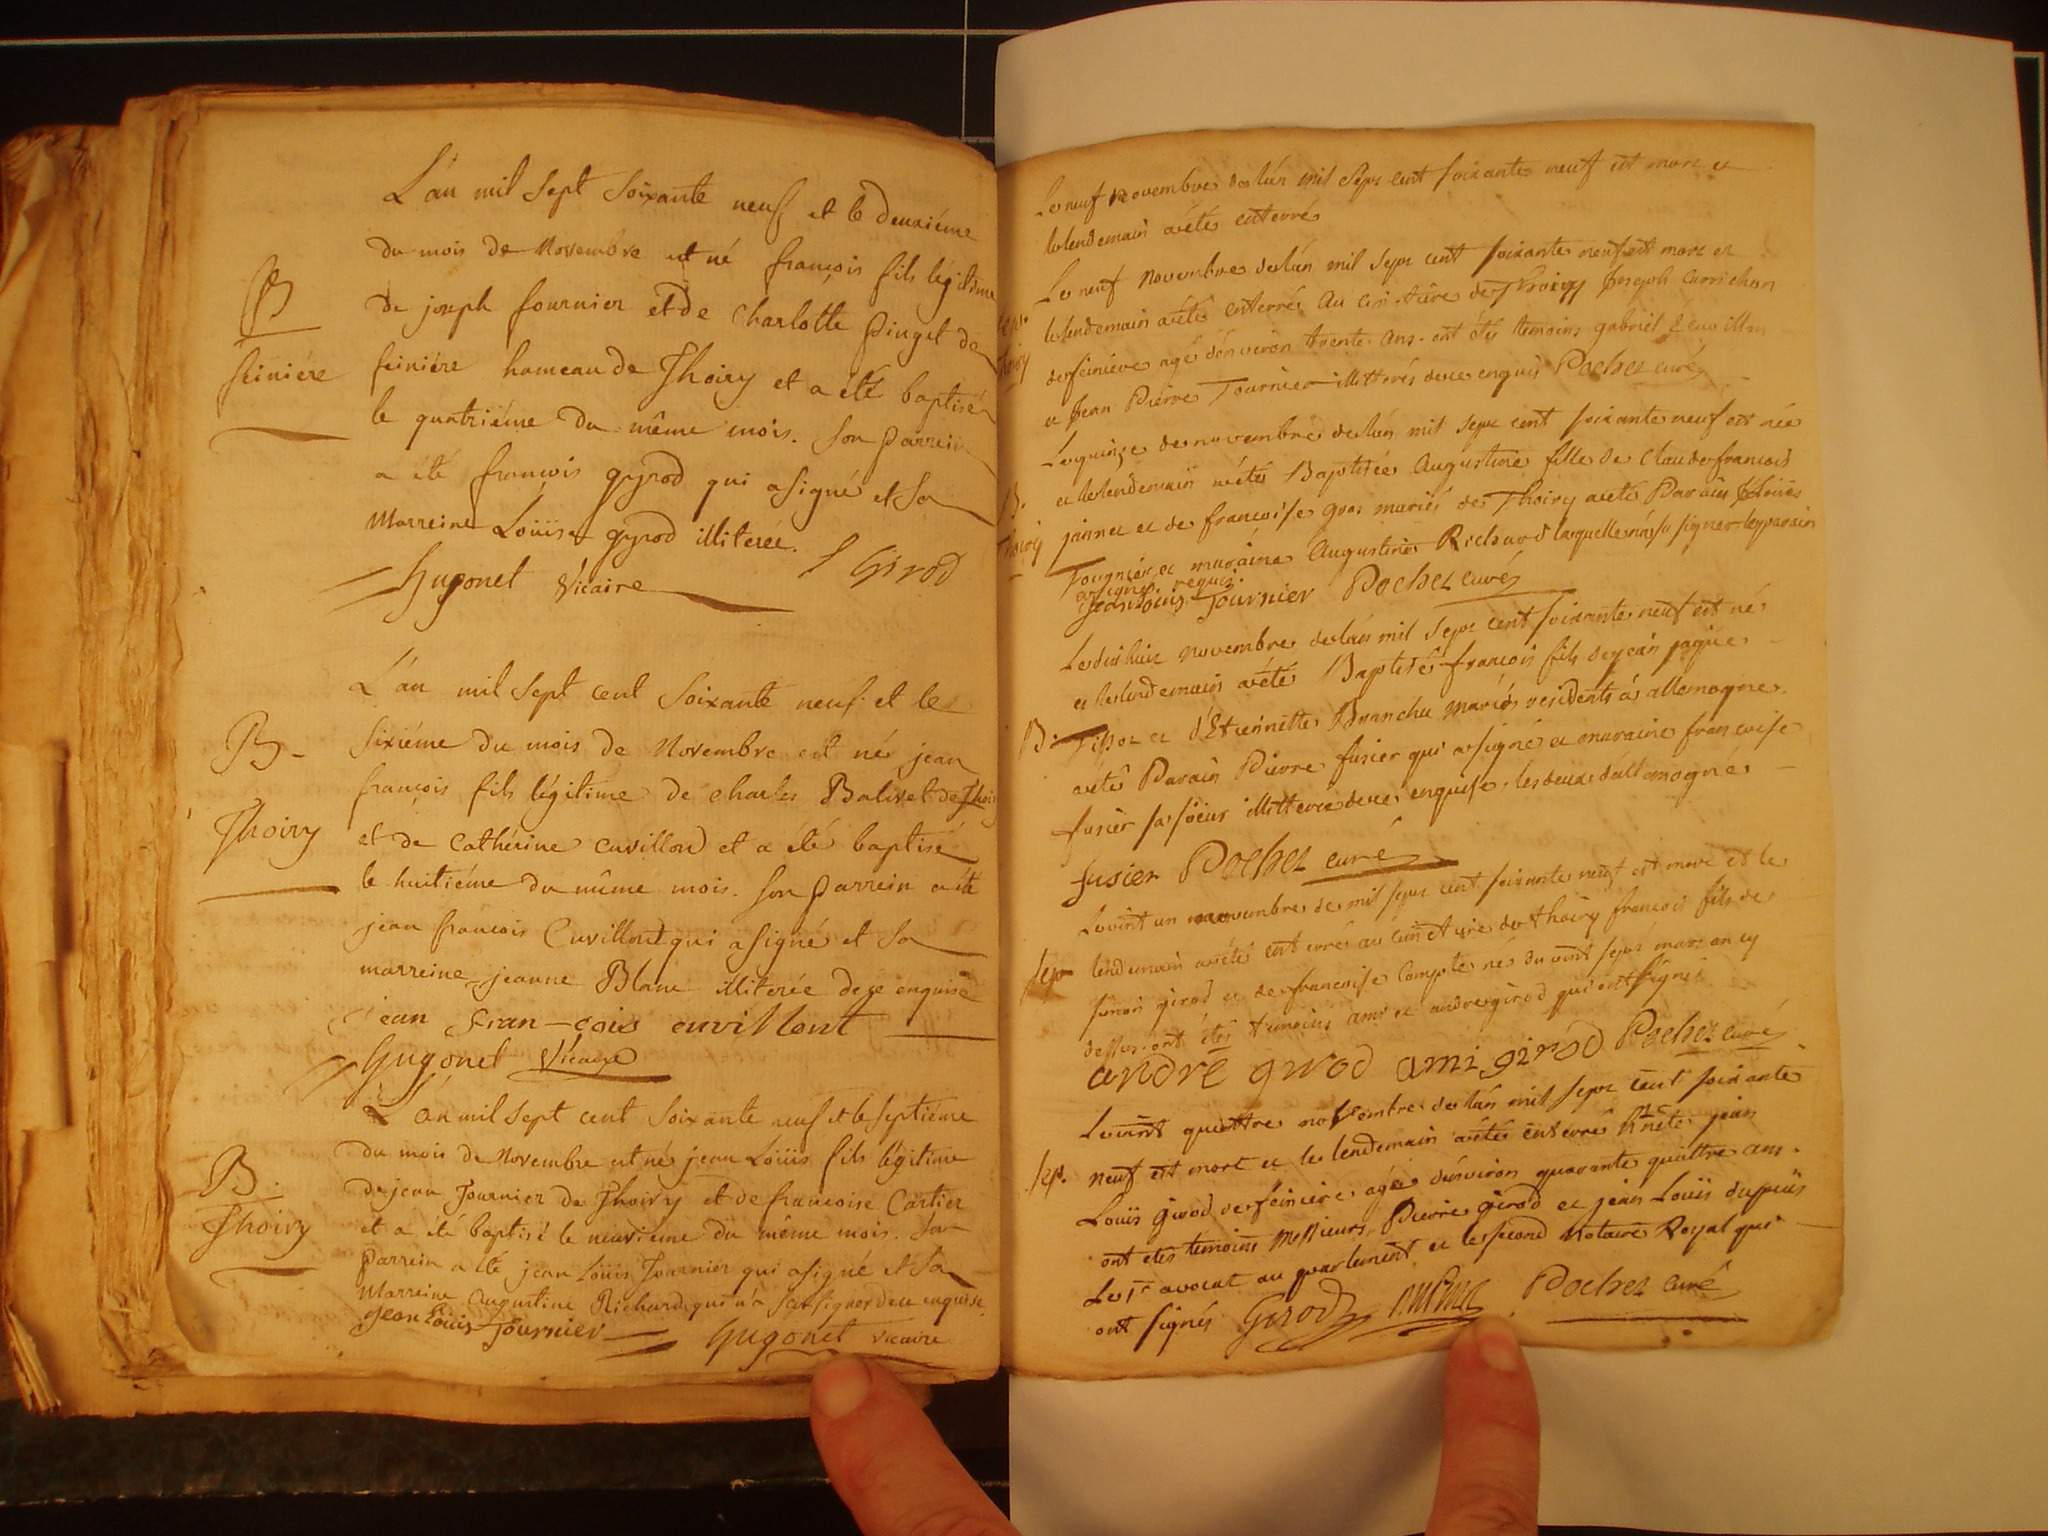 L'an mil sept soixante neuf et le deuxiéme
du mois de Novembre est né françois fils légitime
B
de joseph fournier et de Charlotte pinget de
feiniére
feiniére hameau de Thoiry et a été baptisé
le quatriéme du même mois. son parrein
a été françois gyrod qui a signé et sa
Marreine Loüise gyrod illiterée.
Hugonet Vicaire
f Girod
L'an mil sept cent soixante neuf et le
B
sixiéme du mois de Novembre est né jean
françois fils légitime de charles Balivet de Thoiry
Thoiry
et de Cathérine cuvillond et a été baptisé
le huitiéme du même mois. son parrein a été
jean françois Cuvillond qui a signé et sa
marreine jeanne Blanc illiterée de ce enquise
jean fran-cois cuvillont
Hugonet Vicaire
L'an mil sept cent soixante neuf et le septiéme
du mois de Novembre est né jean Loüis fils légitime
B.
de jean Fournier de Thoiry et de francoise Cartier
Thoiry
et a été baptisé le neuvieme du même mois. son
parrein a été jean Loüis Fournier qui a signé et sa
Marreine Augustine Richard qui n'a sçu signer de ce enquise.
Jean Louis Fournier
Hugonet vicaire
Le neuf novembre de l'an mil sept cent soixante neuf est mort et
le lendemain a été enterré
Le neuf novembre de l'an mil sept cent soixante neuf est mort et
sep.
le lendemain a été enterré au cimetiére de Thoiry Joseph
Thoiry
de feiniere agé d'environ trente ans. ont étés temoins gabriel
et Jean Pierre Fournier illitterés de ce enquis Pochet curé
Le quinze de novembre de l'an mil sept cent soixante neuf est née
B.
et le lendemain a été Baptisée Augustine fille de Claude francois
Thoiry
jannet et de francoise gros mariés de Thoiry a été Parain Jloüis
Fournier et maraine Augustine Richard laquelle n'a su signer le parain
a signé requis.
Jean Louis Fournier Pochet curé
Le dix huit novembre de l'an mil sept cent soixante neuf est né
et le lendemain a été Baptisé francois fils de jean jaque
B.
Tissot et d'Etiennette Branchu mariés residents à allemogne
a été Parain Pierre fusier qui a signé et maraine francoise
fusier sa soeur illitterée de ce enquise. les deux d'allemogne
fusier Pochet curé
Le vint un novembre de mil sept cent soixante neuf est mort et le
sep
lendemain a été enterré au cimetiere de thoiry francois fils de
girod et de francoise Compte né du vint sept mars an cy
dessus. ont étés temoins ami et andre girod qui ont signés
andré girod ami girod Pochet curé
Le vint quattre novembre de l'an mil sept cent soixante
sep.
neuf est mort et le lendemain a été enterré hnète jean
Louis girod de feiniere agé d'environ quarante quattre ans.
ont etés temoins Messieurs Pierre girod et jean Louis dupuis
Le 1r avocat au parlement et le second Notaire Royal qui
ont signés Girod Pochet curé